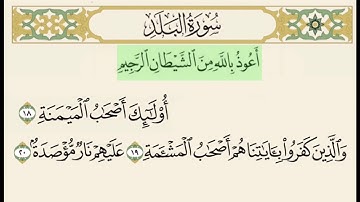 سُورَةُ الْبَلَدِ
أَعُوذُ بِاللَّهِ مِنَ الشَّيْطَانِ الرَّجِيمِ
أُوْلَٰٓئِكَ أَصْحَٰبُ ٱلْمَيْمَنَةِ ١٨
وَٱلَّذِينَ كَفَرُوا۟ بِـَٔايَٰتِنَا هُمْ أَصْحَٰبُ ٱلْمَشْـَٔمَةِ ١٩ عَلَيْهِمْ نَارٌ مُّؤْصَدَةٌۢ ٢٠